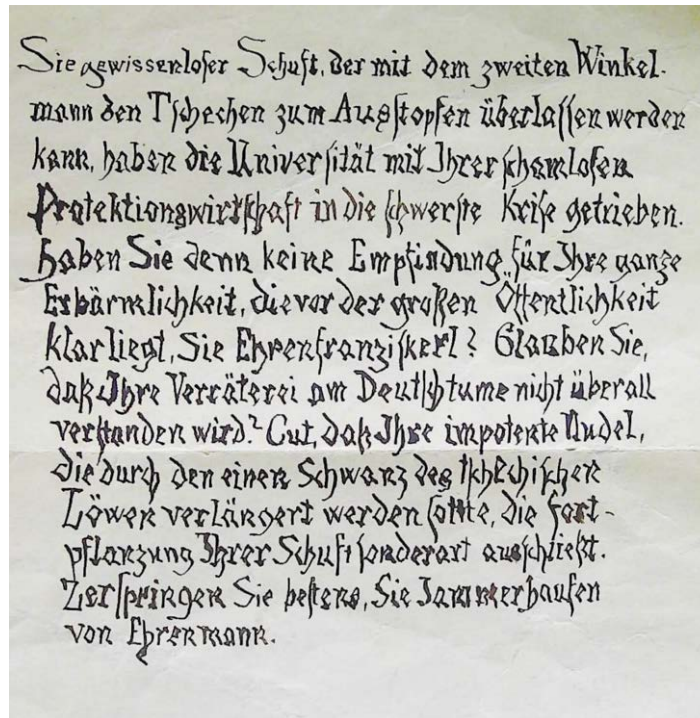 Sie gewissenloser Schuft, der mit dem zweiten Winkel-
mann den Tschechen zum Ausstopfen überlassen werden
kann, haben die Universität mit Ihrer schamlosen
Protektionswirtschaft in die schwerste Krise getrieben.
Haben Sie denn keine Empfindung für Ihre ganze
Erbärmlichkeit, die vor der großen Öffentlichkeit
klar liegt, Sie Ehrenfranziskerl? Glauben Sie,
daß Ihre Verräterei am Deutschtume nicht überall
verstanden wird? Gut, daß Ihre impotente Nudel,
die durch den einen Schwanz des tschechischen
Löwen verlängert werden sollte, die Fort-
pflanzung Ihrer Schuftsonderart ausschließt.
Zerspringen Sie bestens, Sie Jammerhaufen
von Ehrenmann.